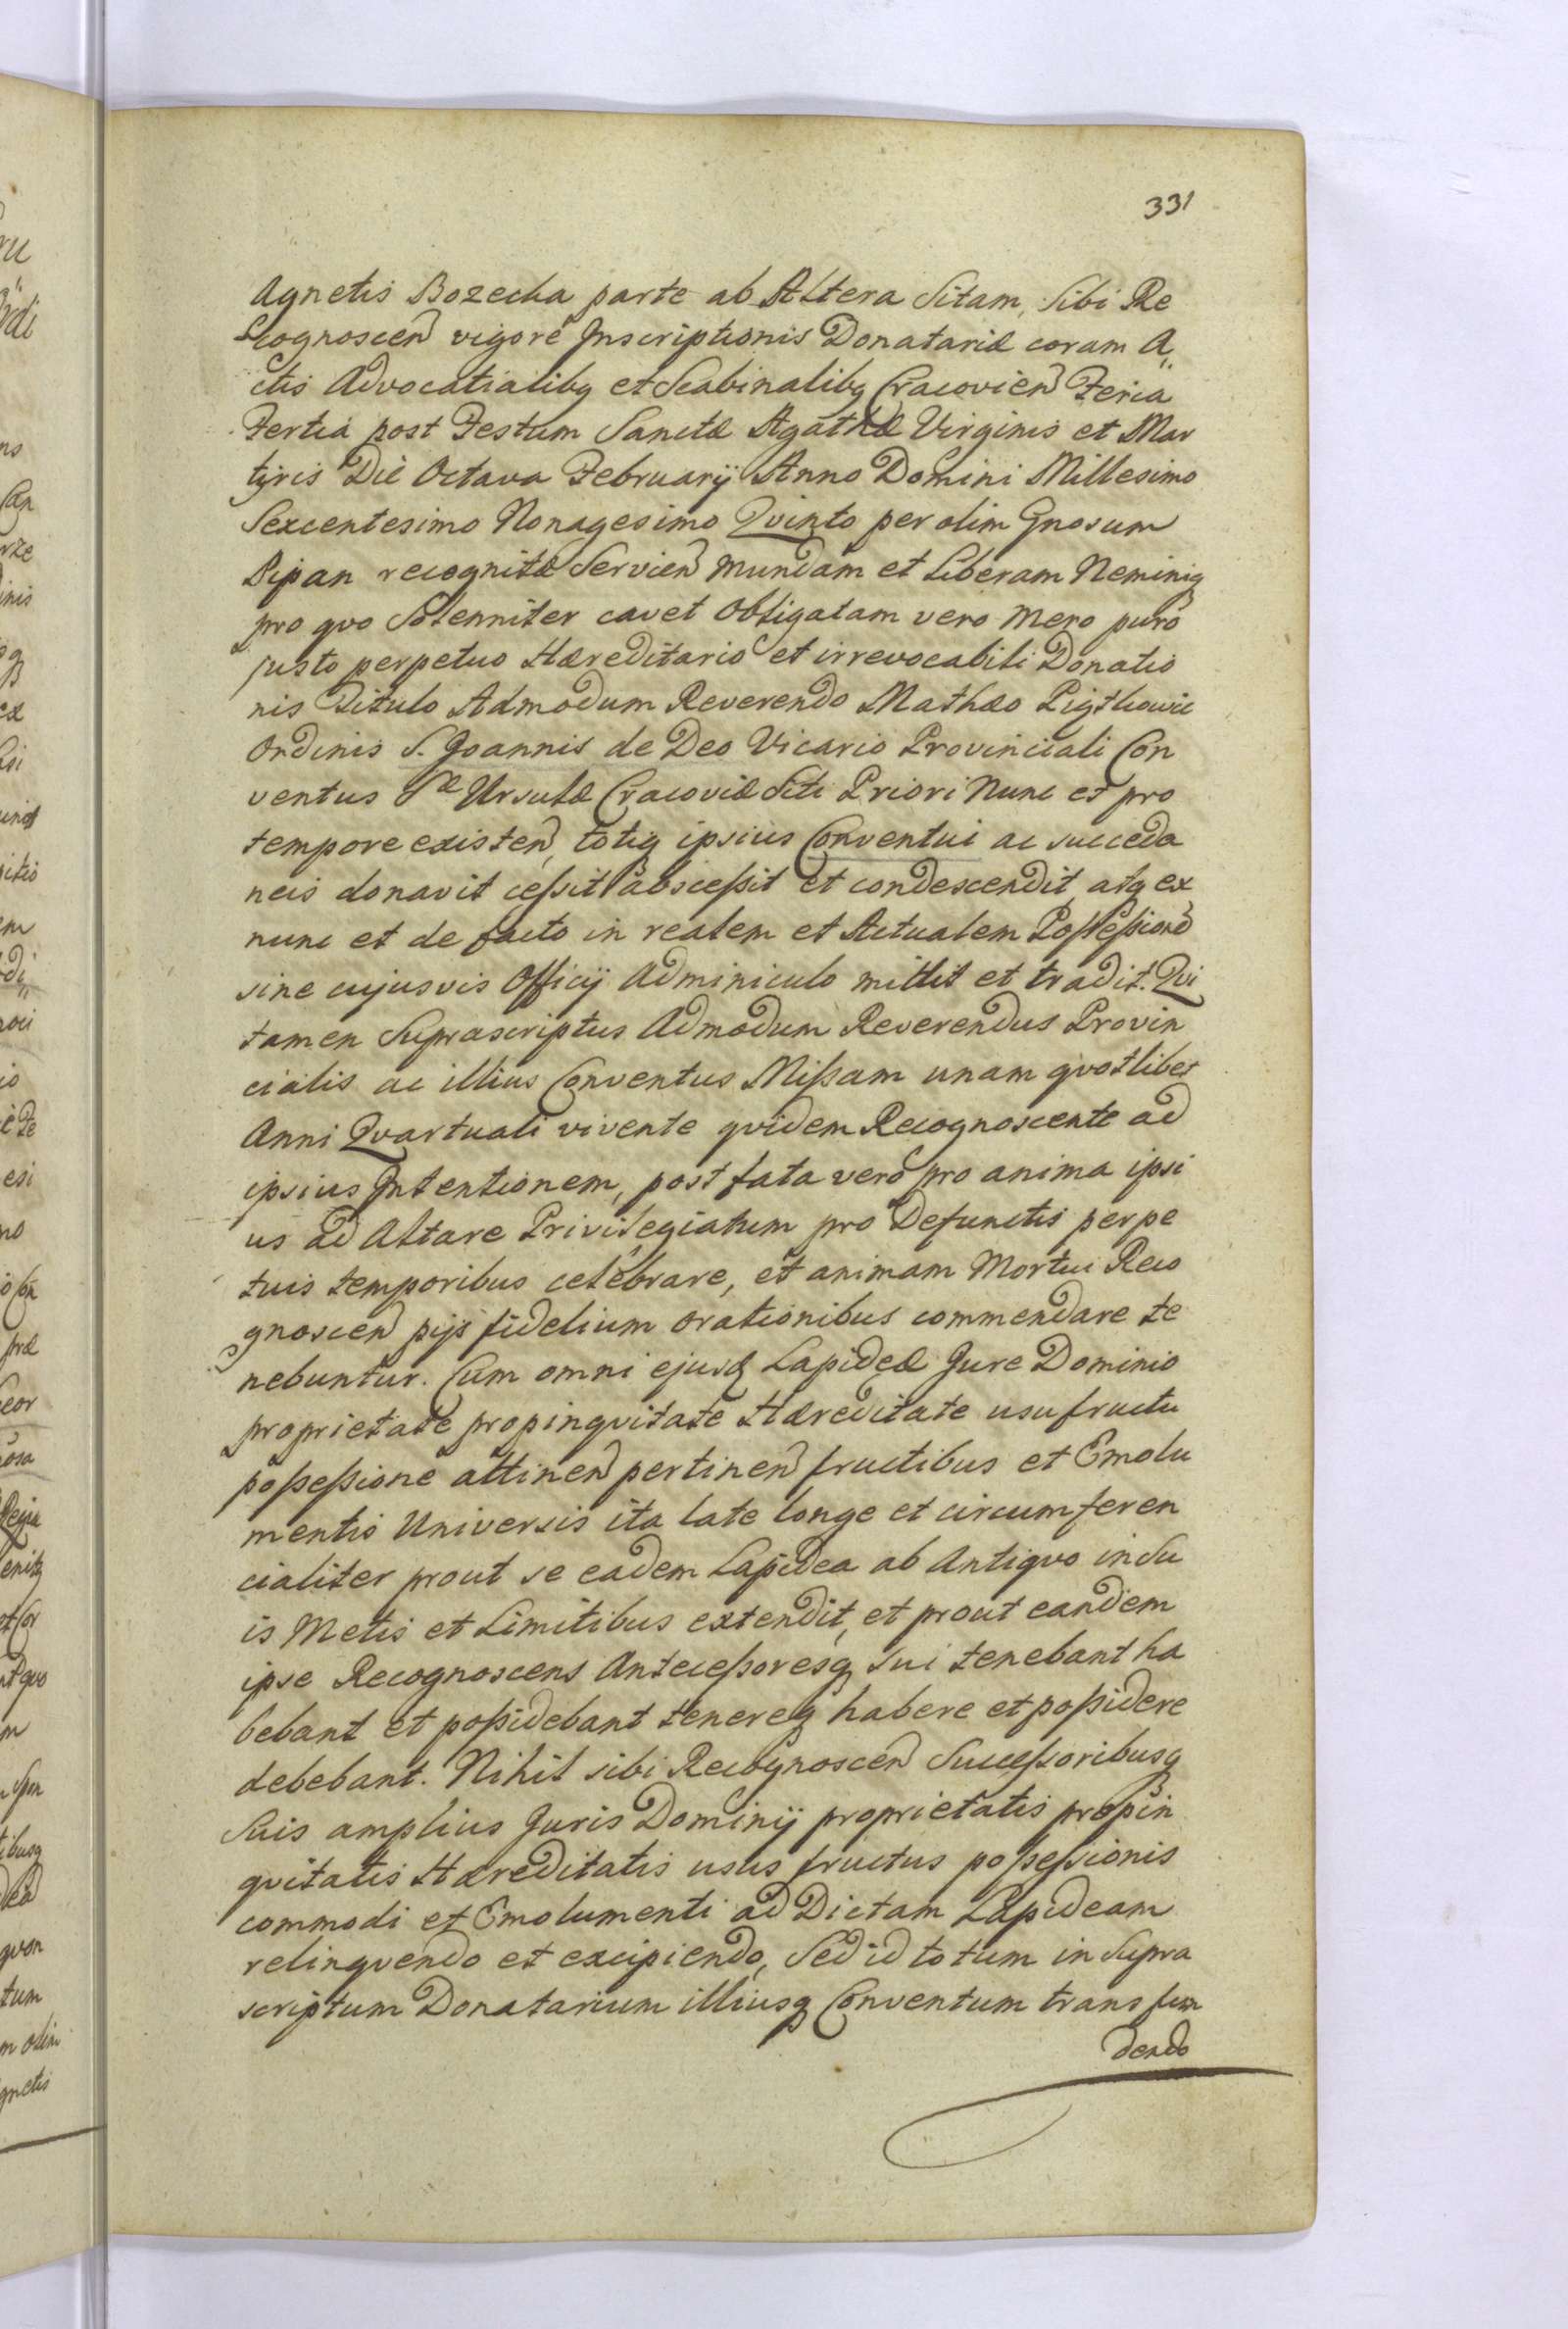 331
Agnetis Bozecka parte ab Altera Sitam, Sibi Re
cognoscen vigore Inscriptionis Donatariæ coram A„
ctis Advocatialibq et Scabinalibq Cracovien Feria
Tertia post Festum Sanctæ Agathæ Virginis et Mar
tyris Die Octava Februarij Anno Domini Millesimo
Sexcentesimo Nonagesimo Qvinto per olim Gnosum
Pipan recognitæ Servien mundam et Liberam Neminiq
pro qvo Solenniter cavet obligatam vero mero puro
justo perpetuo Hæreditario et irrevocabili Donatio
nis Titulo Admodum Reverendo Mathæo
Ordinis S. Joannis de Deo Vicario Provinciali Con
ventus Sæ Ursulæ Cracoviæ Siti Priori Nunc et pro
tempore existen, totiq ipsius Conventui ac succeda
neis donavit ceſsit absceſsit et condescendit atq ex
nunc et de facto in realem et Actualem Poſseſsionē
sine cujusvis Officij Adminiculo mittit et tradit. Qvi
tamen Suprascriptus Admodum Reverendus Provin
cialis ac illius Conventus Miſsam unam qvotlibet
Anni Qvartuali vivente qvidem Recognoscente ad
ipsius Intentionem, post fata vero pro anima ipsi
us ad Altare Privilegiatum pro Defunctis perpe
tuis temporibus celebrare, et animam Mortui Reco
gnoscen pijs fidelium orationibus commendare te
nebuntur. Cum omni ejusd Lapideæ Jure Dominio
proprietate propinqvitate Hæreditate usufructu
poſseſsione attinen pertinen fructibus et Emolu
mentis Universis ita late longe et circumferen
cialiter prout se eadem Lapidea ab Antiqvo in Su
is Metis et Limitibus extendit, et prout eandem
ipse Recognoscens Anteceſsoresq sui tenebant ha
bebant et poſsidebant tenereq habere et poſsidere
debebant. Nihil sibi Recognoscen Succeſsoribusq
Suis amplius Juris Dominij proprietatis propin
qvitatis Hæreditatis usus fructus poſseſsionis
commodi et Emolumenti ad Dictam Lapideam
relinqvendo et excipiendo, Sed id totum in Supra
scriptum Donatarium illiusq Conventum transfun
dendo